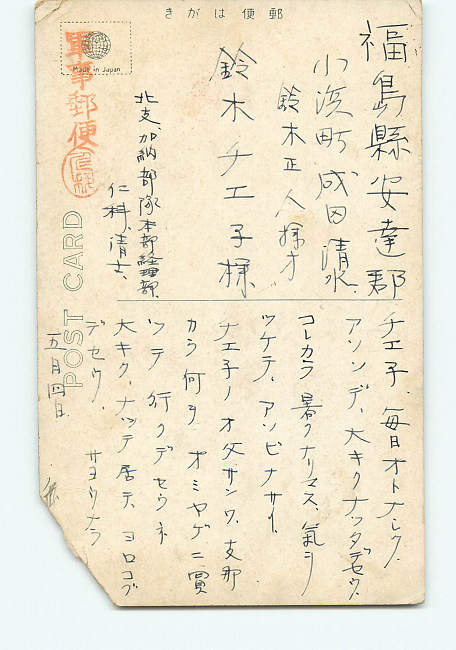 郵便はがき
Made in Japan
軍事郵便
POST CARD
福島縣安達郡
小濱町成田清水
鈴木正人様方
鈴木チエ子様
北支加納部隊本部経理部
仁科清士
チエ子、毎日オトナシク、
アソンデ、大キクナッタデセウ、
コレカラ暑クナリマス、氣ヲ
ツケテ、アソビナサイ、
チエ子ノオ父サンワ、支那
カラ何ヲオミヤゲニ買
ツテ行クデセウネ
大キク、ナッテ居テ、ヨロコブ
デセウ、サヨウナラ
五月四日